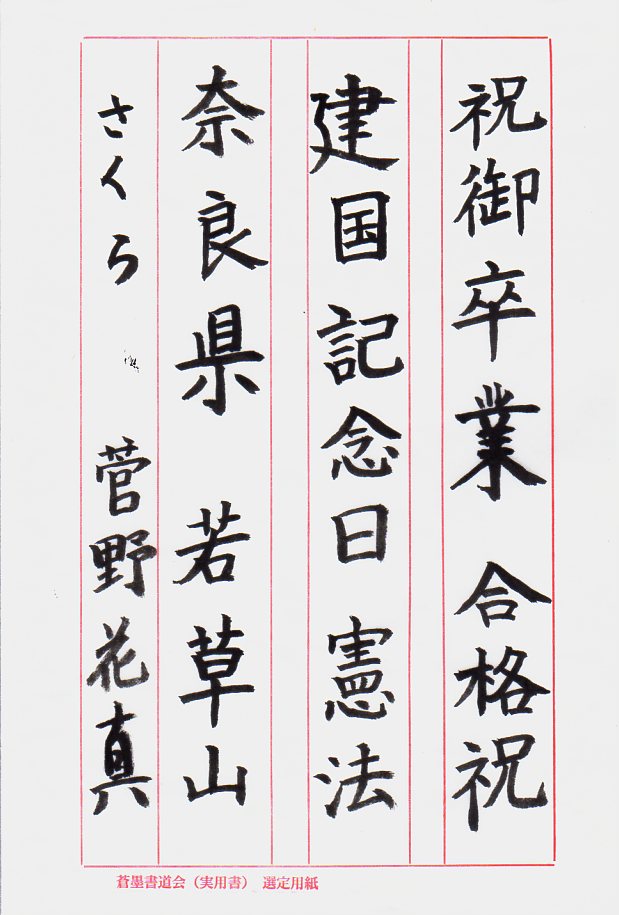 祝御卒業 合格祝
建国記念日 憲法
奈良県 若草山
さくら 菅野花真
蒼墨書道会（実用書） 選定用紙